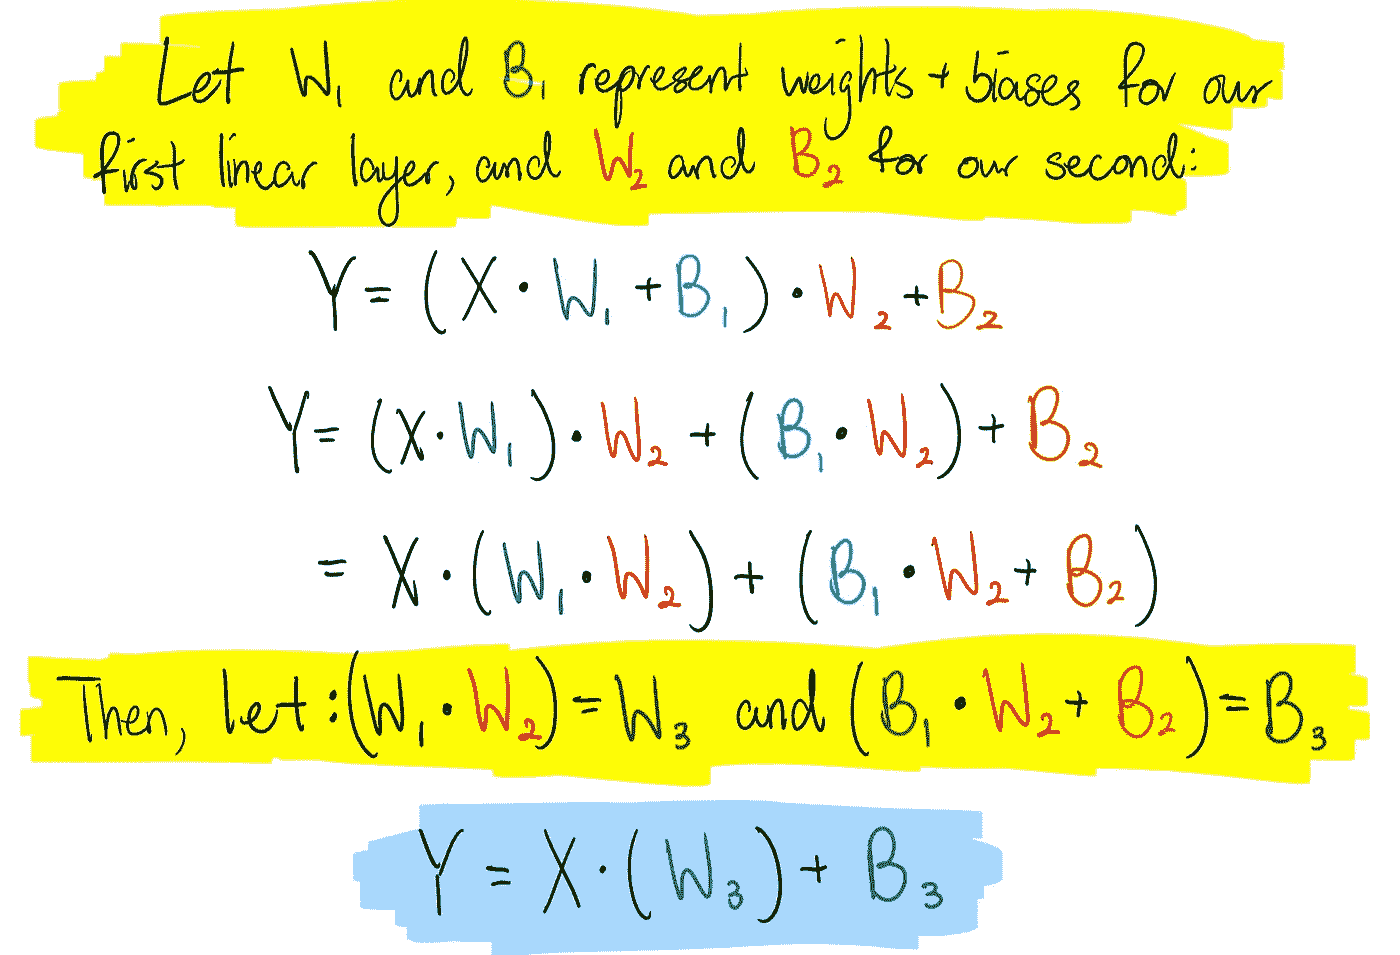 Let W₁ and B₁ represent weights + biases for our
first linear layer, and W₂ and B₂ for our second:
Y = (X · W₁ + B₁) · W₂ + B₂
Y = (X · W₁) · W₂ + (B₁ · W₂) + B₂
= X · (W₁ · W₂) + (B₁ · W₂ + B₂)
Then, let : (W₁ · W₂) = W₃ and (B₁ · W₂ + B₂) = B₃
Y = X · (W₃) + B₃